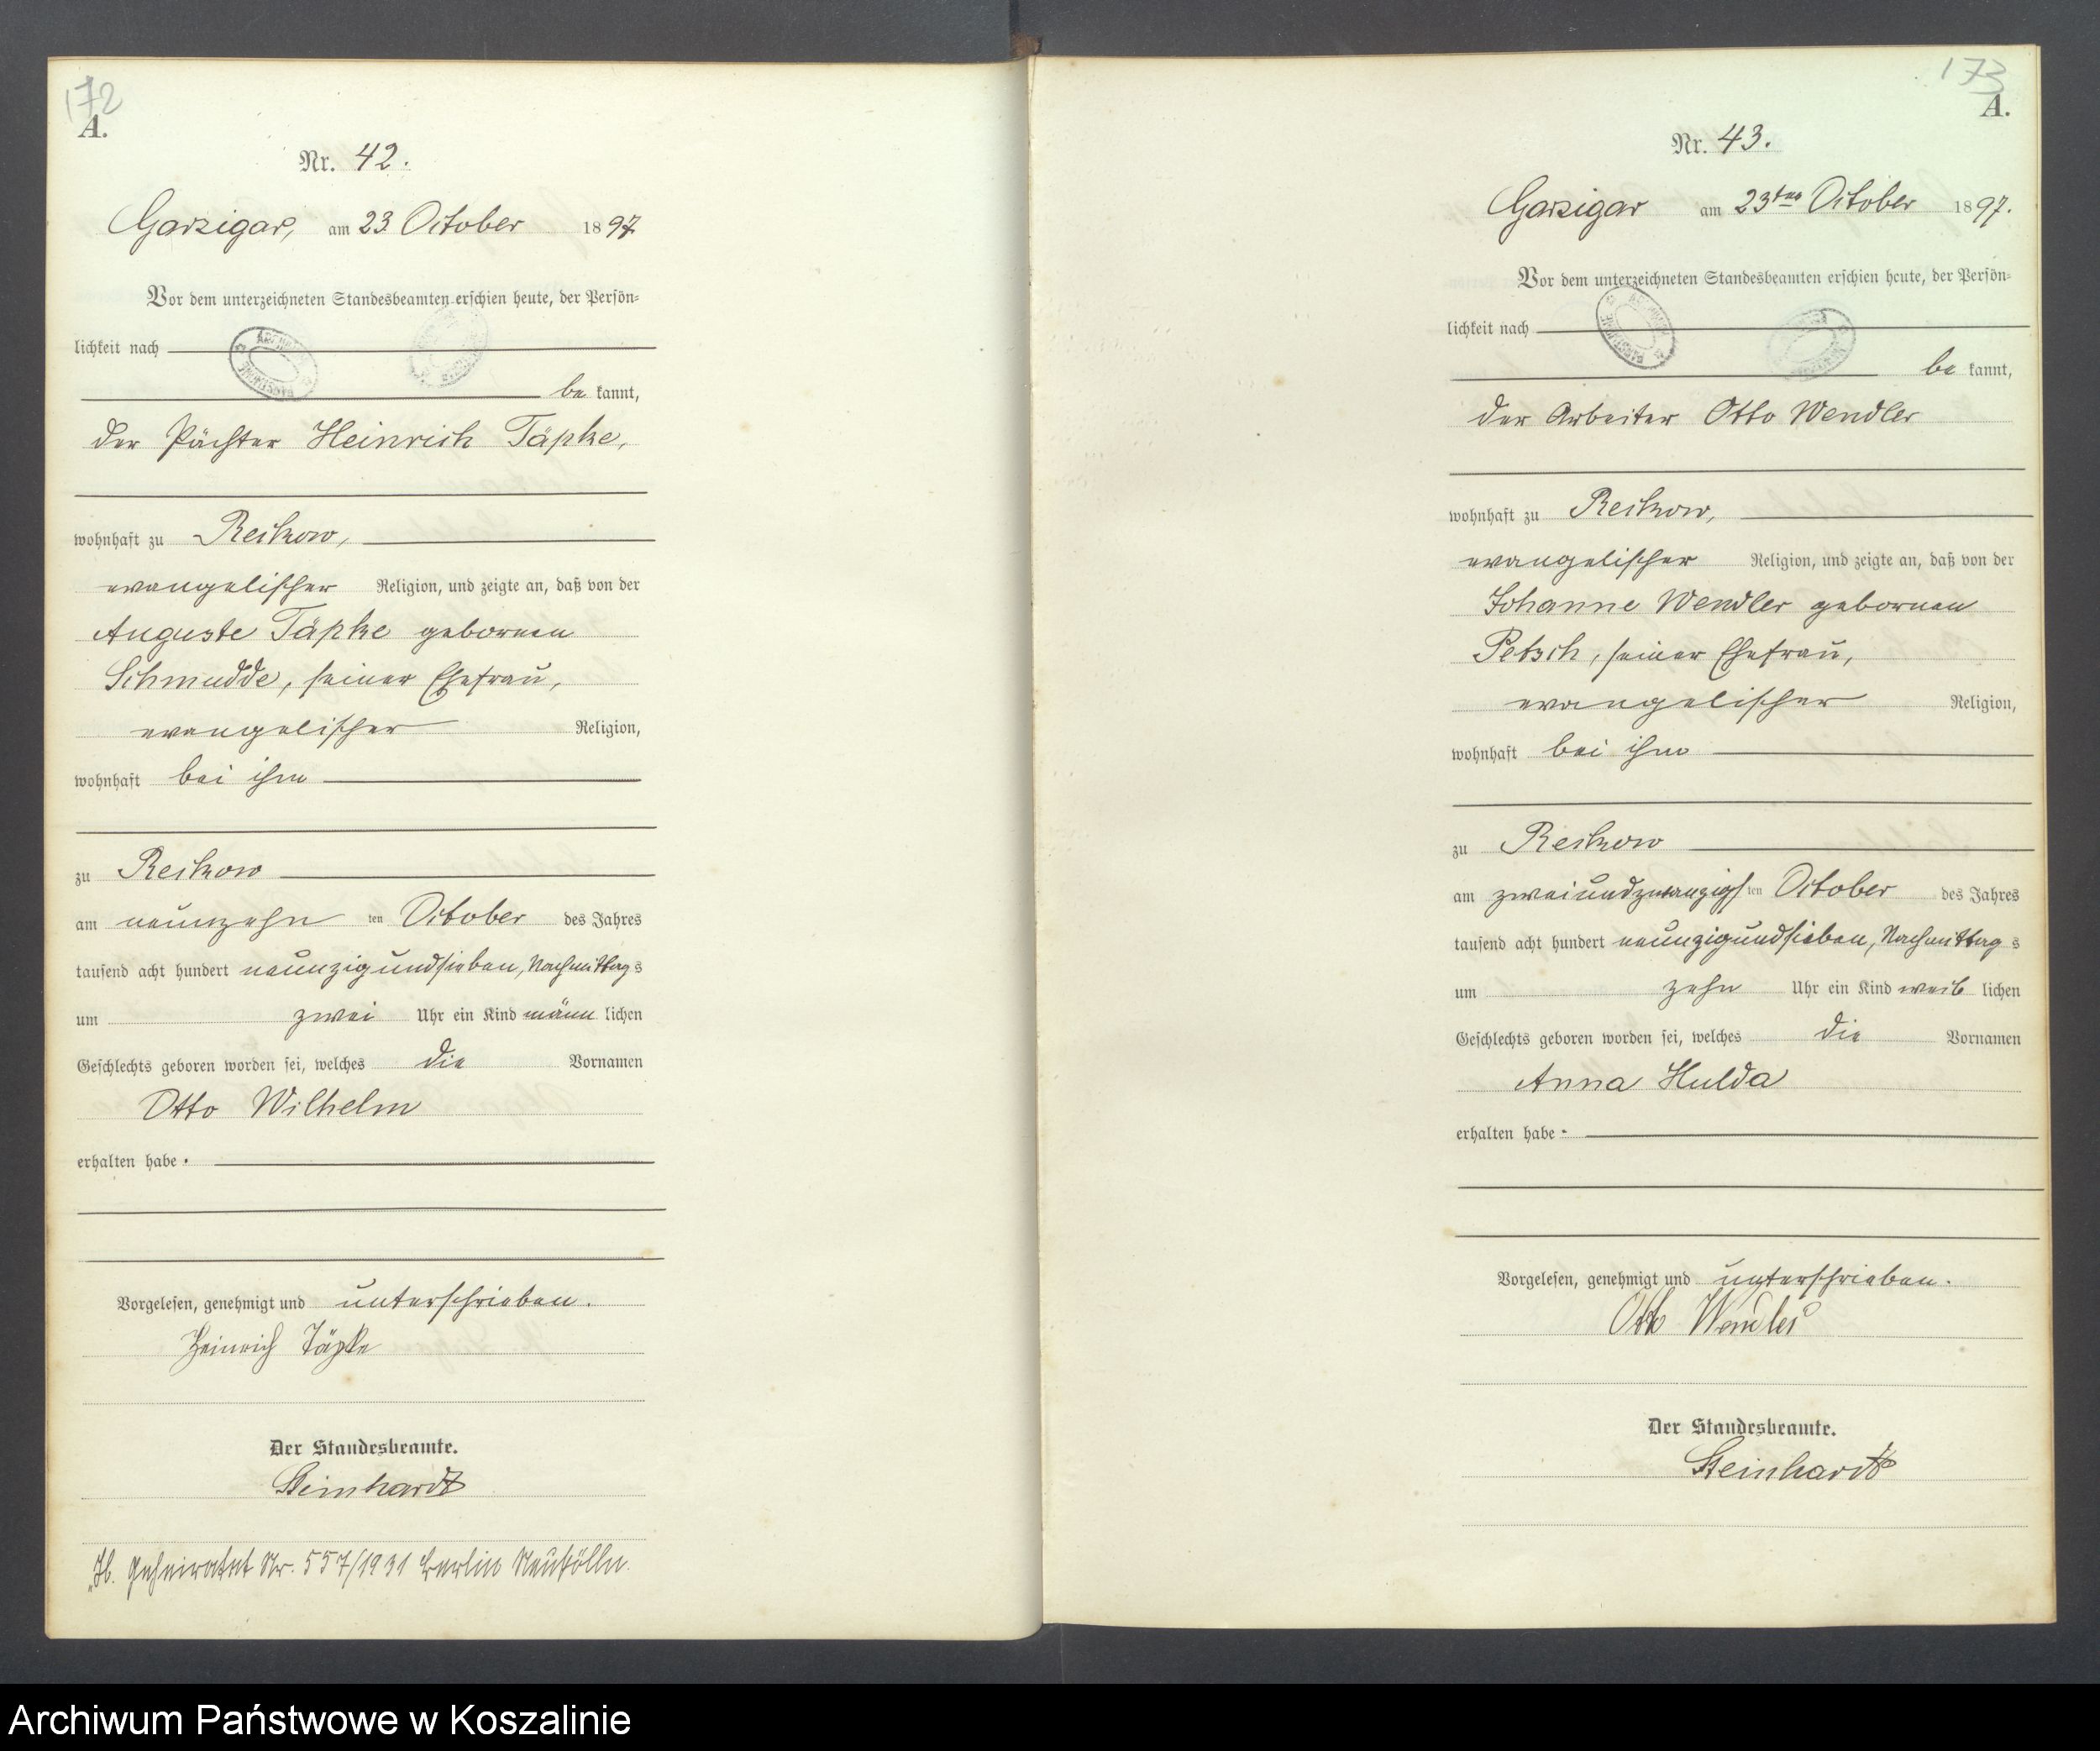 172
A.
Nr. 42.
Garzigar, am 23. October 1897
Vor dem unterzeichneten Standesbeamten erschien heute, der Persön-
lichkeit nach
be kannt,
der Pächter Heinrich Täpke,
wohnhaft zu Reckow,
evangelischer Religion, und zeigte an, daß von der
Auguste Täpke gebornen
Schmudde, seiner Ehefrau,
evangelischer Religion,
wohnhaft bei ihm
zu Reckow
am neunzehn ten October des Jahres
tausend acht hundert neunzigundsieben, Nachmittag s
um zwei Uhr ein Kind männ lichen
Geschlechts geboren worden sei, welches die Vornamen
Otto Wilhelm
erhalten habe.
Vorgelesen, genehmigt und unterschrieben.
Heinrich Täpke
Der Standesbeamte.
Steinhardt
geheiratet Nr. 557/1931 Berlin Neukölln.
173
A.
Nr. 43.
Garzigar am 23ten October 1897.
Vor dem unterzeichneten Standesbeamten erschien heute, der Persön-
lichkeit nach
be kannt,
der Arbeiter Otto Wendler
wohnhaft zu Reckow,
evangelischer Religion, und zeigte an, daß von der
Johanne Wendler gebornen
Petsch, seiner Ehefrau,
evangelischer Religion,
wohnhaft bei ihm
zu Reckow
am zweiundzwanzigs ten October des Jahres
tausend acht hundert neunzigundsieben, Nachmittag s
um zehn Uhr ein Kind weib lichen
Geschlechts geboren worden sei, welches die Vornamen
Anna Hulda
erhalten habe.
Vorgelesen, genehmigt und unterschrieben.
Otto Wendler
Der Standesbeamte.
Steinhardt
Archiwum Państwowe w Koszalinie